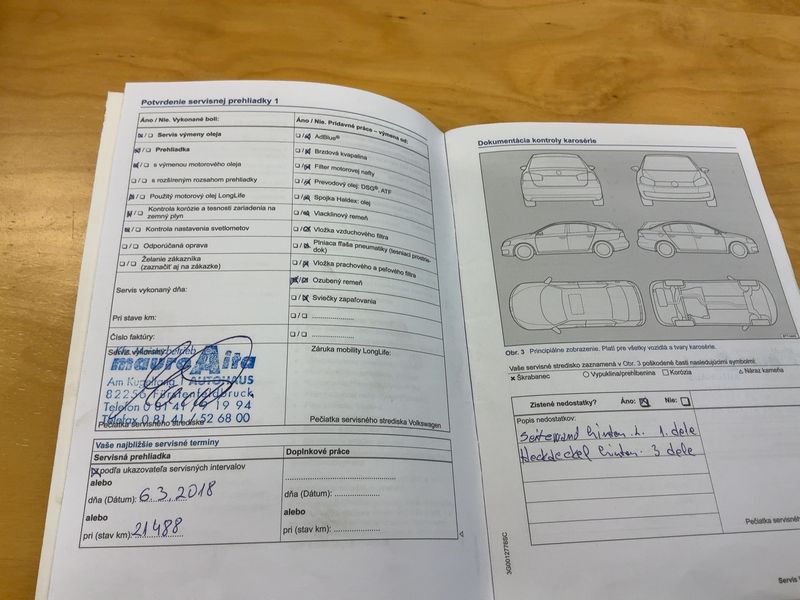 Potvrdenie servisnej prehliadky 1
Áno / Nie. Vykonané boli:
/ Servis výmeny oleja
/ Prehliadka
/ s výmenou motorového oleja
/ s rozšíreným rozsahom prehliadky
/ Použitý motorový olej LongLife
/ Kontrola korózie a tesnosti zariadenia na
zemný plyn
/ Kontrola nastavenia svetlometov
/ Odporúčaná oprava
/ Želanie zákazníka
(zaznačiť aj na zákazke)
Servis vykonaný dňa:
Pri stave km:
Číslo faktúry:
Servis vykonaný:
Kfz-Meisterbetrieb
mauro Alta
Am Kugelfang 1 AUTOHAUS
82256 Fürstenfeldbruck
Telefon 0 81 41 / 6 19 94
Telefax 0 81 41 / 52 68 00
Pečiatka servisného strediska
Áno / Nie. Prídavné práce – výmena od:
/ AdBlue®
/ Brzdová kvapalina
/ Filter motorovej nafty
/ Prevodový olej: DSG®, ATF
/ Spojka Haldex: olej
/ Viacklinový remeň
/ Vložka vzduchového filtra
/ Plniaca fľaša pneumatiky (tesniaci prostrie-
dok)
/ Vložka prachového a peľového filtra
/ Ozubený remeň
/ Sviečky zapaľovania
/ ..............
/ ..............
Záruka mobility LongLife:
Pečiatka servisného strediska Volkswagen
Vaše najbližšie servisné termíny
Servisná prehliadka
podľa ukazovateľa servisných intervalov
alebo
dňa (Dátum): 6.3.2018
alebo
pri (stav km): 21488
Doplnkové práce
..............................
dňa (Dátum): ................
alebo
pri (stav km): ................
Dokumentácia kontroly karosérie
Obr. 3 Principiálne zobrazenie. Platí pre všetky vozidlá a tvary karosérie.
Vaše servisné stredisko zaznamená v Obr. 3 poškodené časti nasledujúcimi symbolmi:
× Škrabanec ○ Vypuklina/prehĺbenina □ Korózia △ Náraz kameňa
Zistené nedostatky? Áno: Nie:
Popis nedostatkov:
Seitenwand hinten L. 1. dele
Heckdeckel hinten. 3 dele
Pečiatka servisného
3G0012776SC
Servis